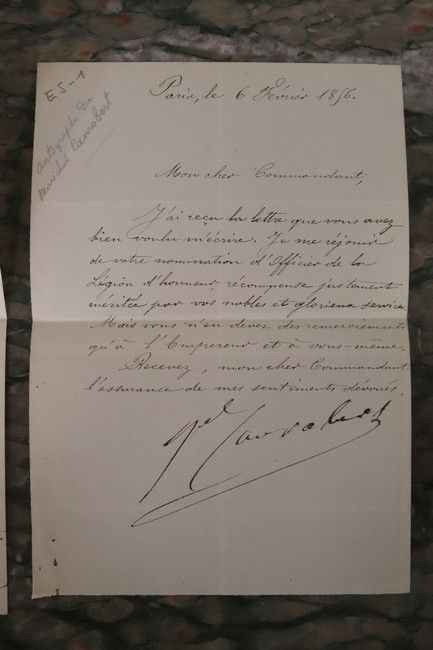 E5-1
autograph du
maréchal Canrobert
Paris, le 6 Février 1856.
Mon cher Commandant,
J'ai reçu la lettre que vous avez
bien voulu m'écrire. Je me réjouis
de votre nomination d'Officier de la
Légion d'honneur récompense justement
méritée par vos nobles et glorieux service
Mais vous n'en devez des remerciements
qu'à l'Empereur et à vous-même.
Recevez, mon cher Commandant
l'assurance de mes sentiments dévoués.
Gal Canrobert